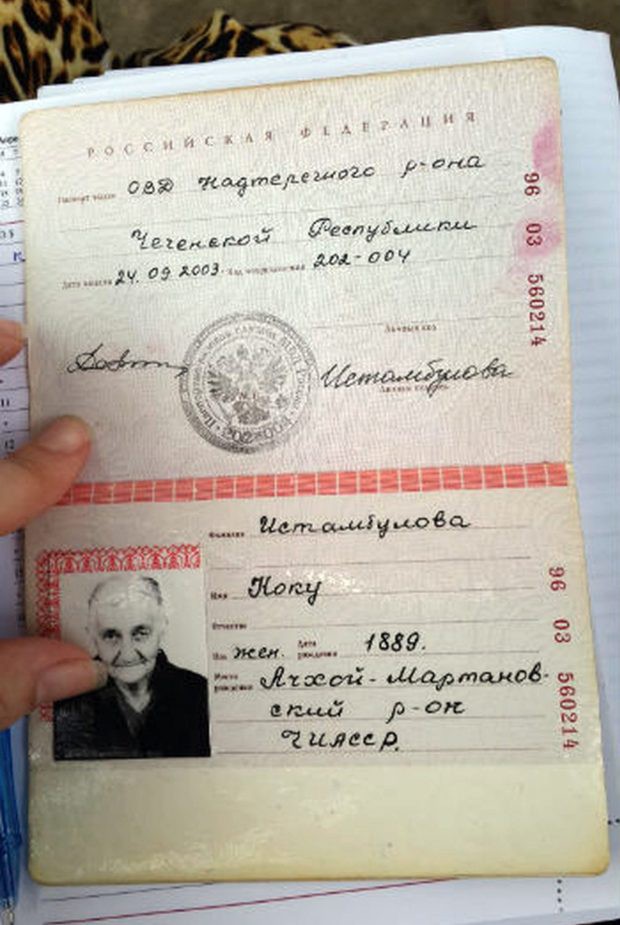 РОССИЙСКАЯ ФЕДЕРАЦИЯ
Паспорт выдан ОВД Надтеречного р-она
Чеченской Республики
Дата выдачи 24.09.2003. Код подразделения 202-004
Личный код
Истамбулова
Личная подпись
96 03 560214
Фамилия Истамбулова
Имя Коку
Отчество
Пол жен. Дата рождения 1889.
Место рождения Ачхой-Мартанов-
ский р-он
ЧИАССР.
96 03 560214